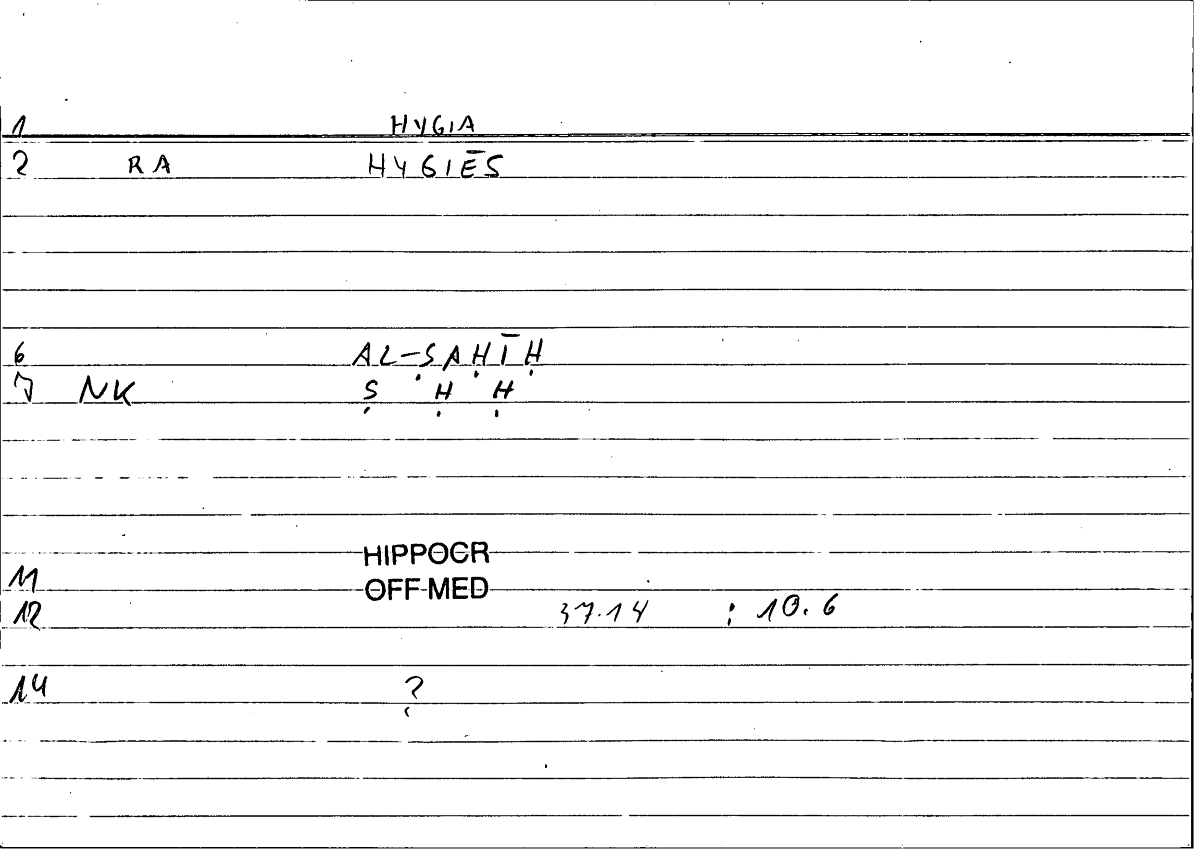 1 HYGIA
2 RA HYGIĒS
6 AL-ṢAḤĪḤ
7 NK Ṣ Ḥ Ḥ
HIPPOCR
11 OFF-MED
12 37.14 : 10.6
14 ?